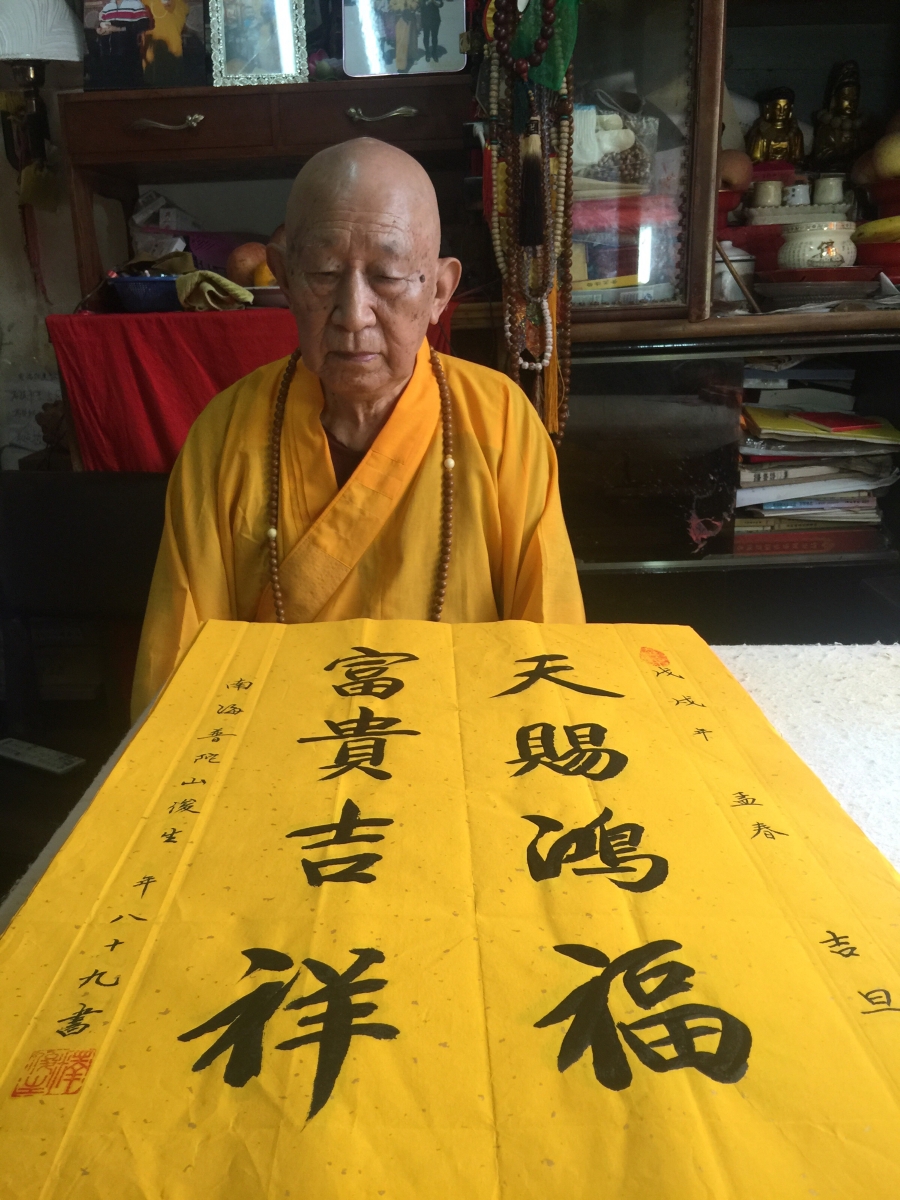 戊戌年 孟春 吉旦
天賜鴻福
富貴吉祥
南海普陀山浚生 年八十九書